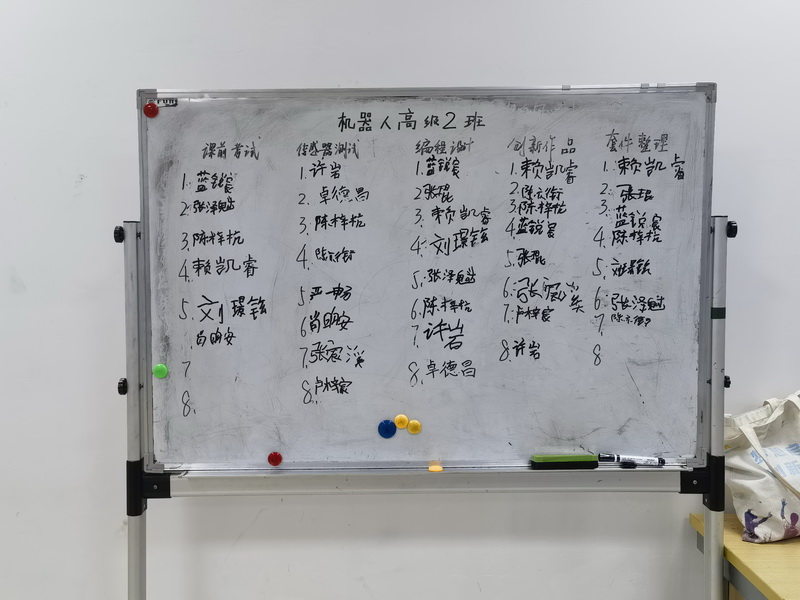 机器人高级2班
课前考试
1.蓝锐宸
2.张泽魁
3.陈梓杭
4.赖凯睿
5.刘璟铉
肖明安
7
8.
传感器测试
1.许岩
2.卓德昌
3.陈梓杭
4.
5.严一畅
6肖明安
7.张宸溪
8.卢梓宸
编程设计
1.蓝锐宸
2张琨
3.赖凯睿
4.刘璟铉
5.张泽魁
6.陈梓杭
7.许岩
8.卓德昌
创新作品
1.赖凯睿
2.
3.陈梓杭
4.蓝锐宸
5.张琨
6.
7.卢梓宸
8.许岩
套件整理
1.赖凯睿
2.张琨
3.蓝锐宸
4.陈梓杭
5.刘璟铉
6.张泽魁
7.
8